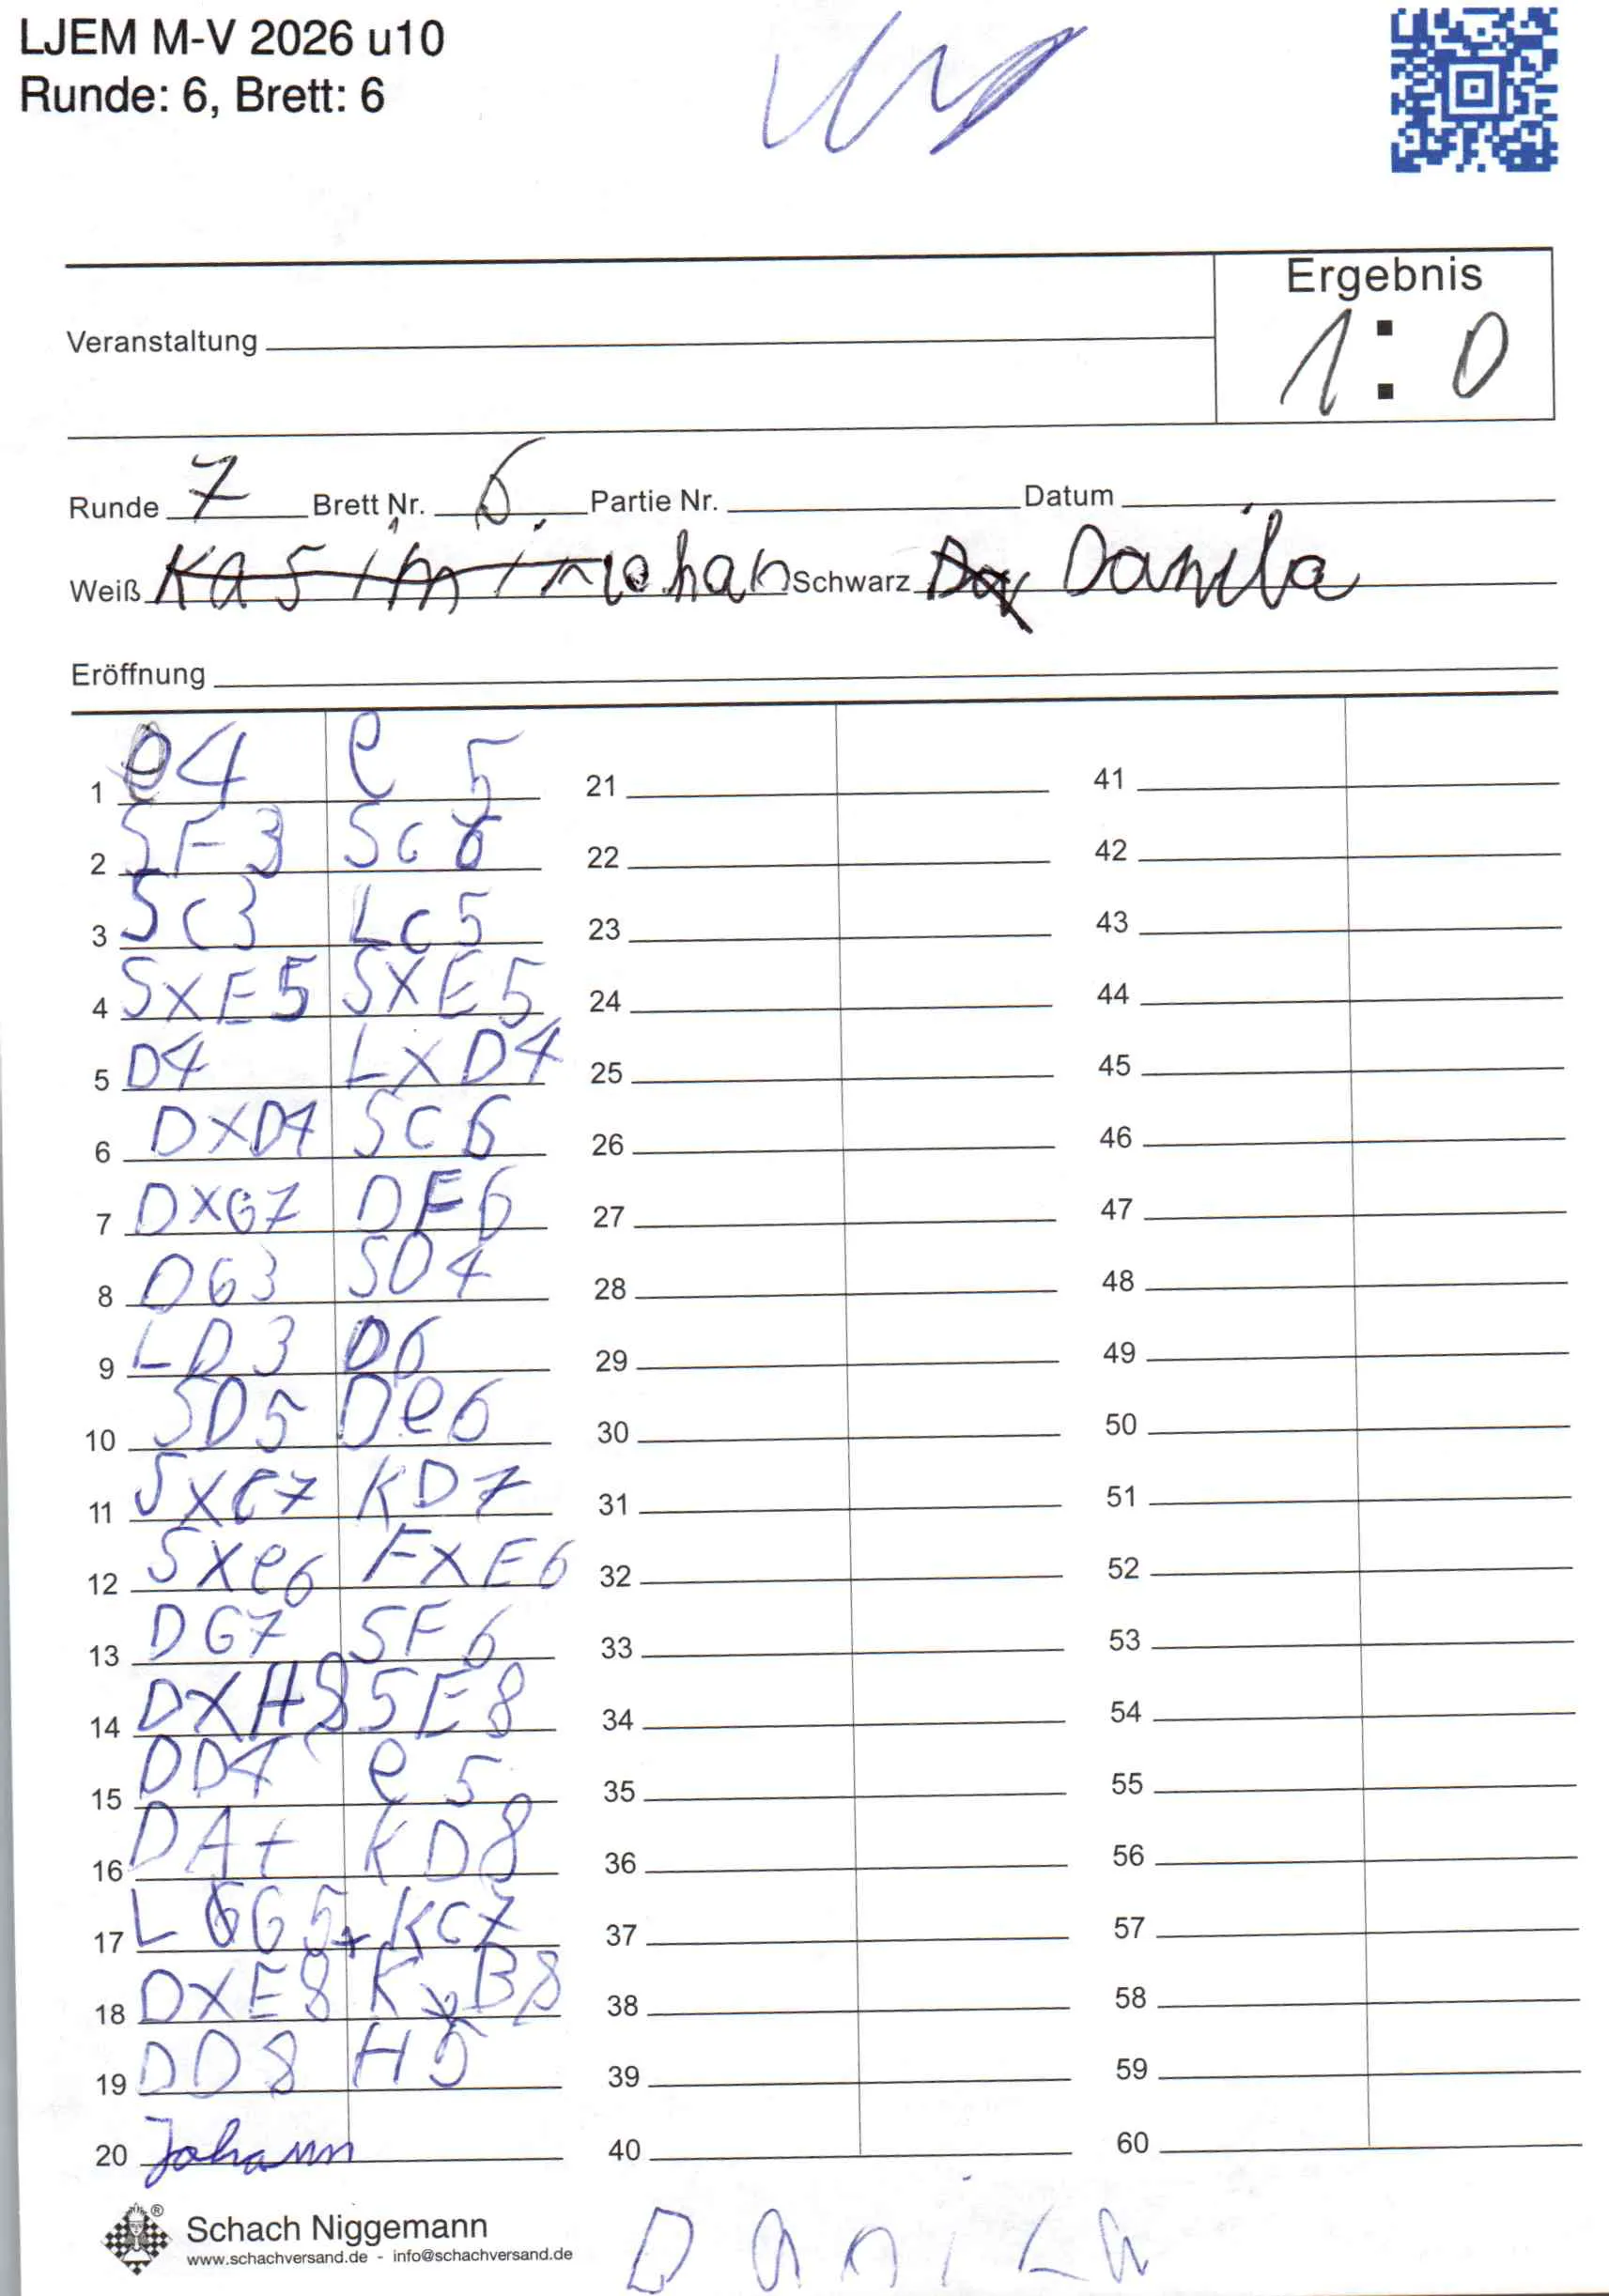 LJEM M-V 2026 u10
Runde: 6, Brett: 6
Ergebnis
Veranstaltung
1 : 0
Runde 7 Brett Nr. 6 Partie Nr. Datum
Weiß Schwarz Danila
Eröffnung
1 e4 e 5 21 41
2 SF3 Sc6 22 42
3 Sc3 Lc5 23 43
4 SXE5 SXE5 24 44
5 D4 LXD4 25 45
6 DXD4 SC6 26 46
7 DXG7 DF6 27 47
8 DG3 SD4 28 48
9 LD3 D6 29 49
10 SD5 De6 30 50
11 SXC7 KD7 31 51
12 SXe6 FXE6 32 52
13 DG7 SF6 33 53
14 DXH8 SE8 34 54
15 DD4 e5 35 55
16 DA+ KD8 36 56
17 L GG5+ KC7 37 57
18 DXE8 KxB8 38 58
19 DD8 H5 39 59
20 Johann 40 60
Schach Niggemann
www.schachversand.de - info@schachversand.de
DaniLa